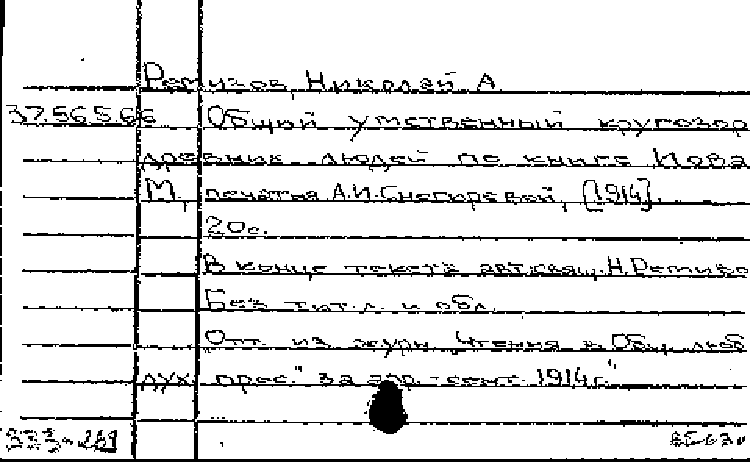 Ремизов, Николай А.
37.56566 Общий умственный кругозор
древних людей по книге Иова
М., печатня А.И. Снегиревой, [1914].
20с.
В конце текста авт. свящ. Н. Ремизо
Без тит. л. и обл.
Отт. из журн. „Чтения в Общ. люб
дух. прос." за апр.-сент. 1914г."